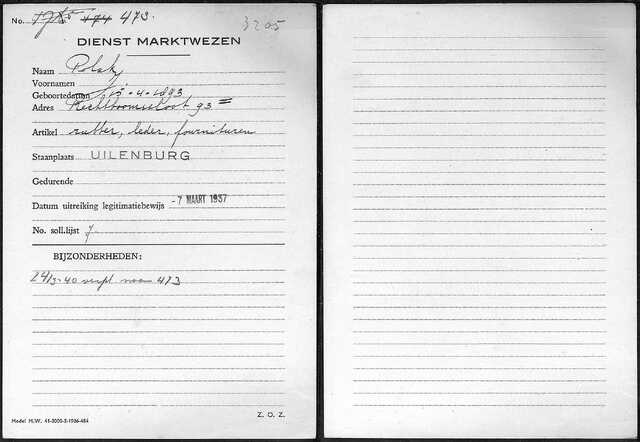 No. 473.
3205
DIENST MARKTWEZEN
Naam Polak
Voornamen
Geboortedatum 15-4-1893
Adres Rechtboomsloot 93 II
Artikel rubber, leder, fournituren
Staanplaats UILENBURG
Gedurende
Datum uitreiking legitimatiebewijs -7 MAART 1937
No. soll.lijst
BIJZONDERHEDEN:
24/3-40 verpl. naar 473
Z. O. Z.
Model M.W. 41-3000-3-1936-484